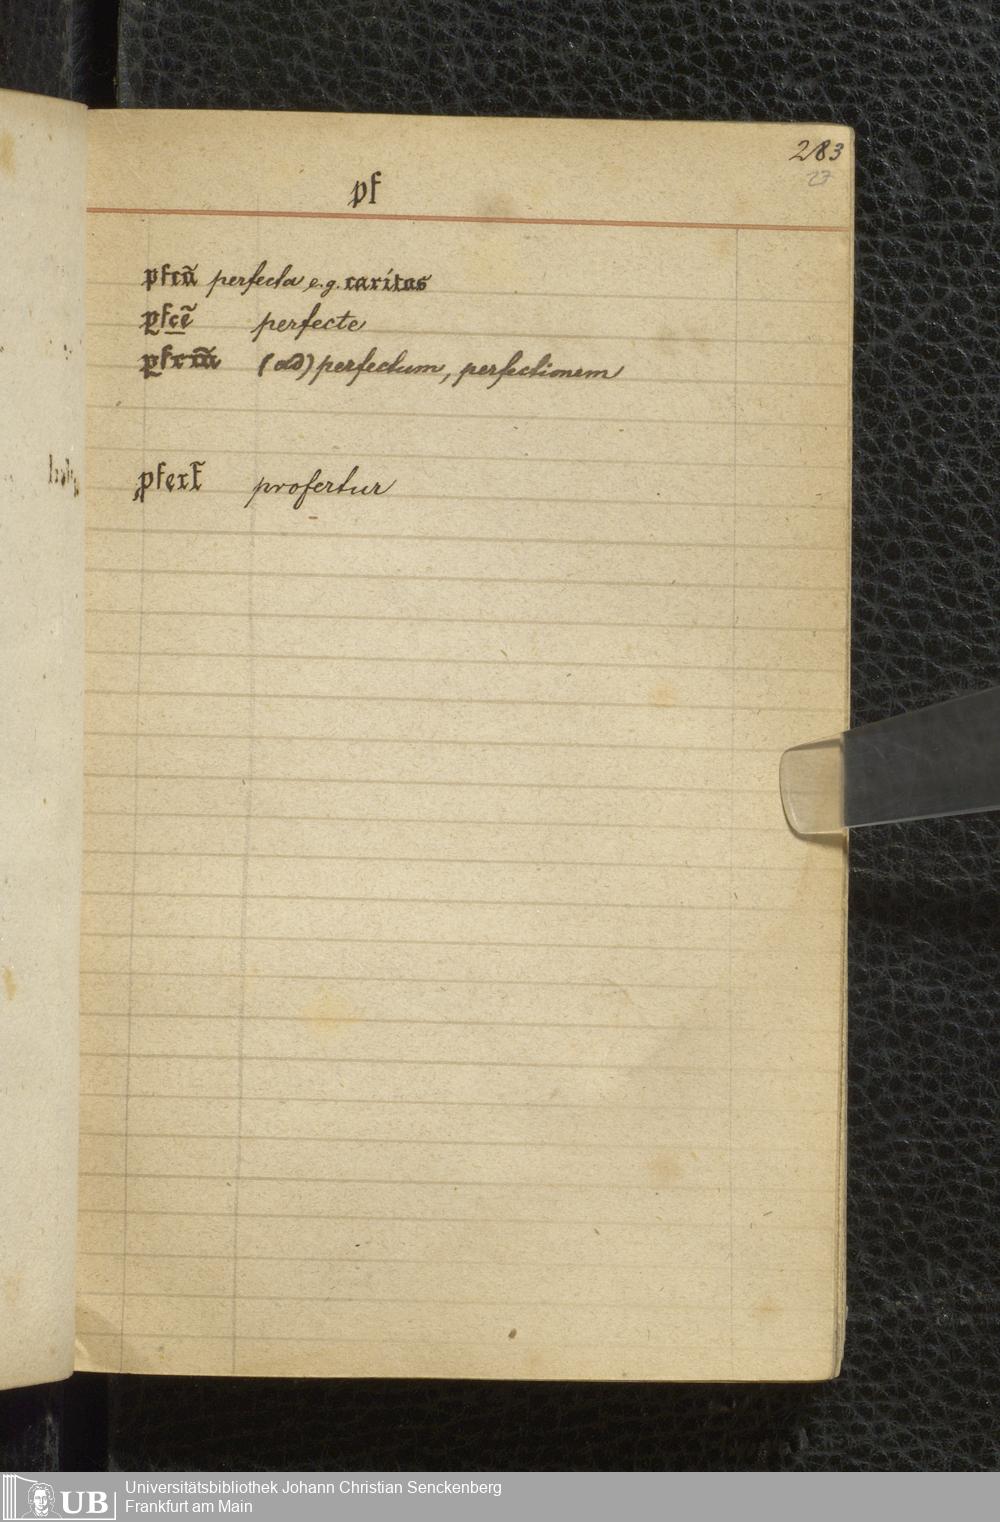 283
27
pf
pfcã perfecta e.g. caritas
ꝑfcẽ perfecte
ꝑfcm̃ (ad) perfectum, perfectionem
ꝓfert̃ profertur
UB Universitätsbibliothek Johann Christian Senckenberg
Frankfurt am Main